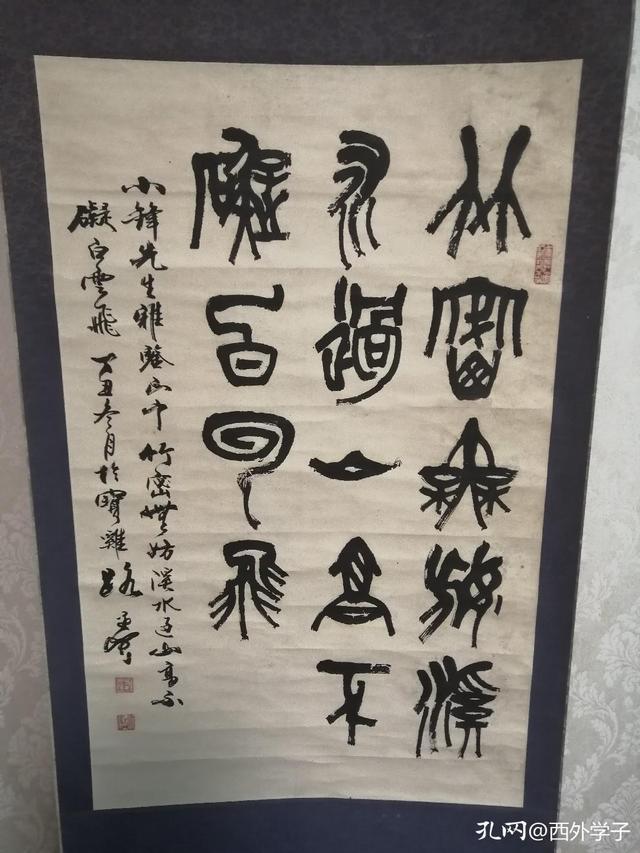 竹密無妨溪
水過山高不
礙白雲飛
小鋒先生雅鑒竹密無妨溪水過山高不
礙白雲飛 丁丑冬月於寶雞
孔网@西外学子